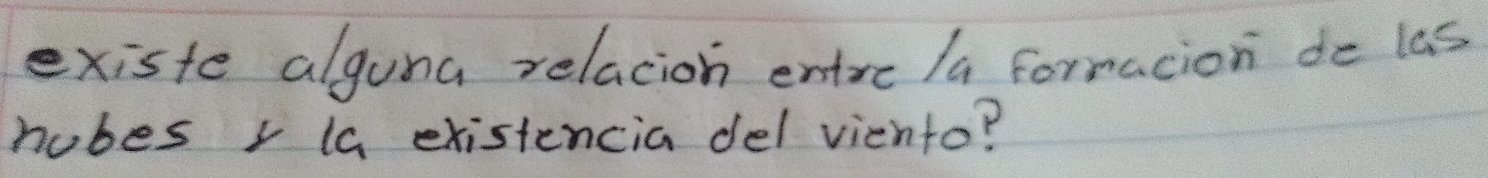 existe alguna relación entre la formación de las
nubes y la existencia del viento?